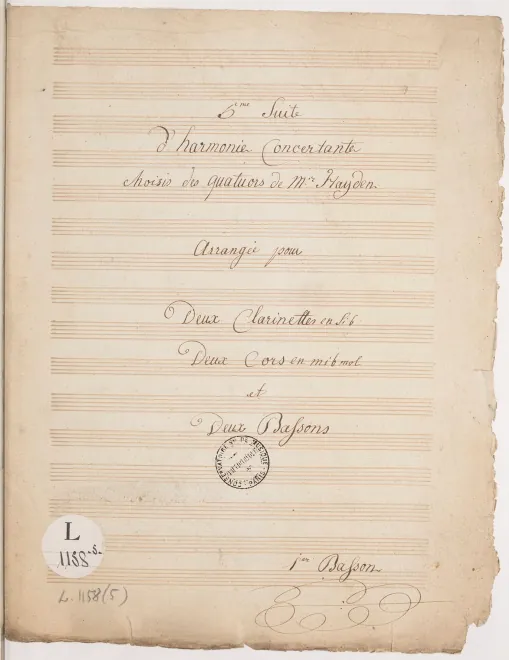 5me Suite
d'harmonie Concertante
choisis des quatuors de Mr Hayden
Arrangée pour
Deux Clarinettes en Si b
Deux Cors en mi b mol
et
Deux Bassons
L
1158-5-
L. 1158(5)
1er Basson